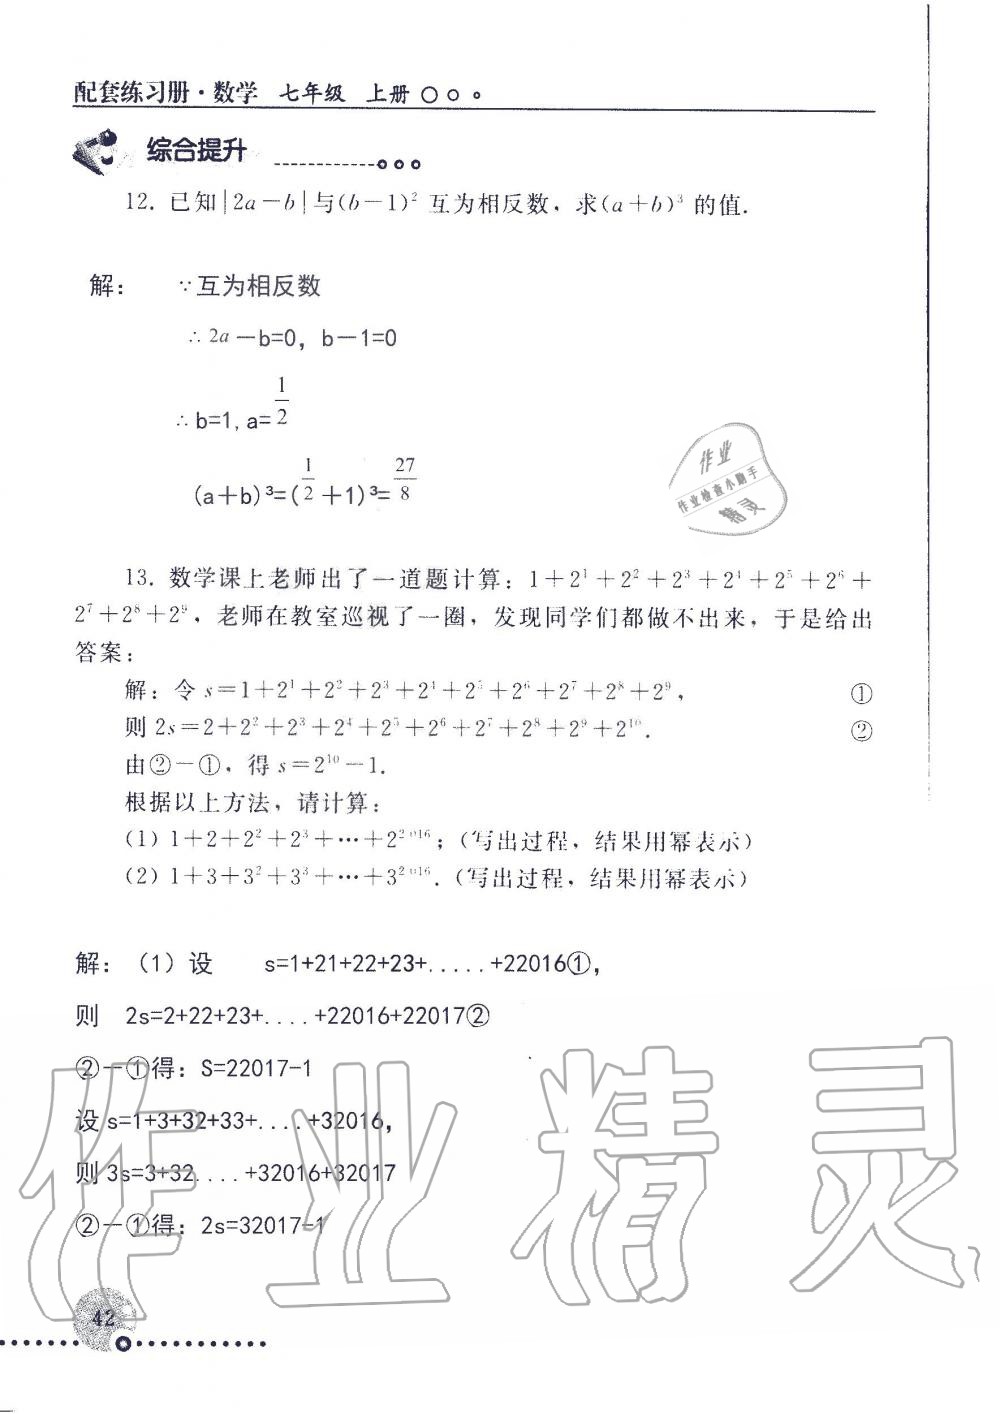 配套练习册·数学 七年级 上册
综合提升
12. 已知|2a-b|与(b-1)²互为相反数，求(a+b)³的值.
解： ∵互为相反数
∴2a－b=0，b－1=0
∴b=1,a=1/2
(a＋b)³=(1/2＋1)³=27/8
作业
作业检查小助手
精灵
13. 数学课上老师出了一道题计算：1+2¹+2²+2³+2⁴+2⁵+2⁶+
2⁷+2⁸+2⁹，老师在教室巡视了一圈，发现同学们都做不出来，于是给出
答案：
解：令 s=1+2¹+2²+2³+2⁴+2⁵+2⁶+2⁷+2⁸+2⁹， ①
则 2s=2+2²+2³+2⁴+2⁵+2⁶+2⁷+2⁸+2⁹+2¹⁰. ②
由②-①，得 s=2¹⁰-1.
根据以上方法，请计算：
(1) 1+2+2²+2³+⋯+2²⁰¹⁶；(写出过程，结果用幂表示)
(2) 1+3+3²+3³+⋯+3²⁰¹⁶. (写出过程，结果用幂表示)
解：（1）设 s=1+21+22+23+.....+22016①,
则 2s=2+22+23+....+22016+22017②
②－①得：S=22017-1
设 s=1+3+32+33+....+32016,
则 3s=3+32....+32016+32017
②－①得：2s=32017-1
作业精灵
42